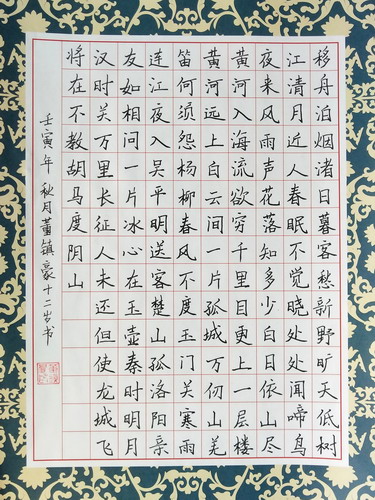 移舟泊烟渚日暮客愁新野旷天低树
江清月近人春眠不觉晓处处闻啼鸟
夜来风雨声花落知多少白日依山尽
黄河入海流欲穷千里目更上一层楼
黄河远上白云间一片孤城万仞山羌
笛何须怨杨柳春风不度玉门关寒雨
连江夜入吴平明送客楚山孤洛阳亲
友如相问一片冰心在玉壶秦时明月
汉时关万里长征人未还但使龙城飞
将在不教胡马度阴山
壬寅年秋月董镇豪十二岁书